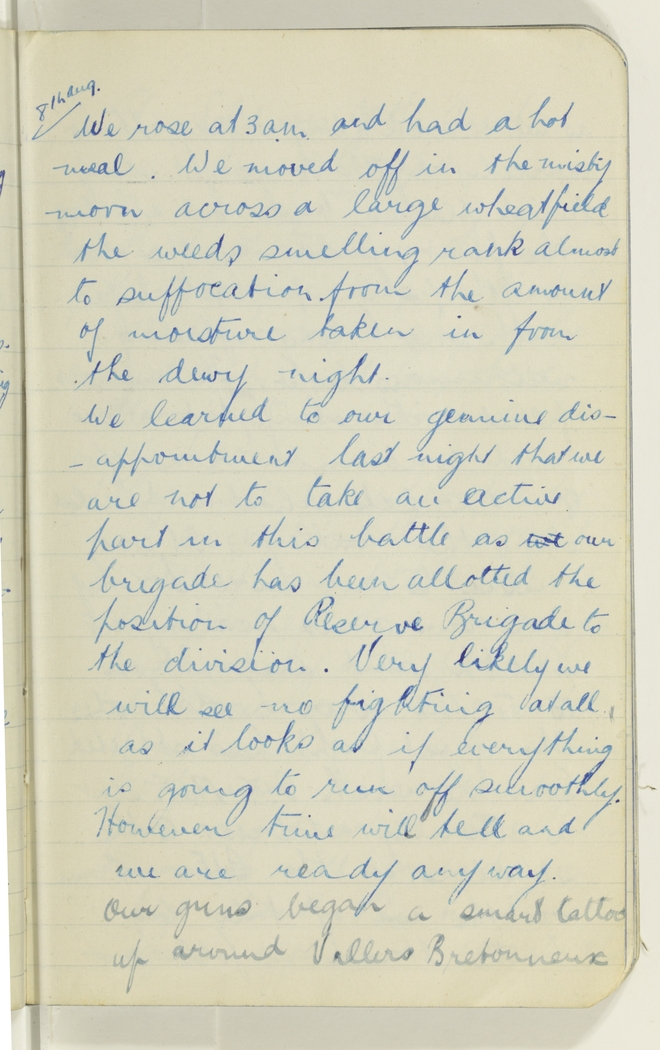 8th Aug.
We rose at 3 am. and had a hot
meal. We moved off in the misty
morn across a large wheatfield
the weeds smelling rank almost
to suffocation from the amount
of moisture taken in from
the dewy night.
We learned to our genuine dis-
-appointment last night that we
are not to take an active
part in this battle as we our
brigade has been allotted the
position of Reserve Brigade to
the division. Very likely we
will see no fighting at all,
as it looks as if everything
is going to run off smoothly.
However time will tell and
we are ready anyway.
Our guns began a smart tattoo
up around Villers Bretonneux